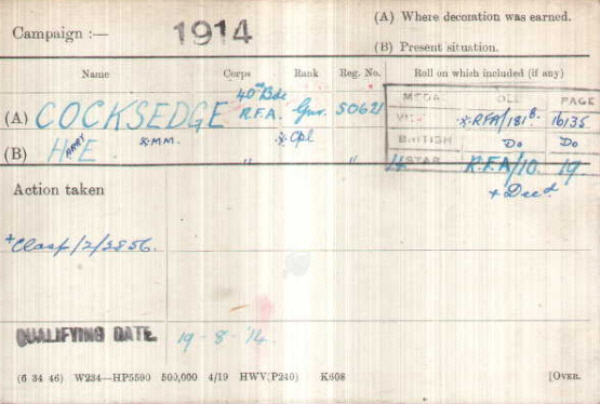 (A) Where decoration was earned.
Campaign :— 1914
(B) Present situation.
Name Corps Rank Reg. No. Roll on which included (if any)
MEDAL ROLL PAGE
(A) COCKSEDGE 40th Bde R.F.A. Gnr. 50621 VICTORY *RFA/181B. 16135
(B) HARRY E *M.M. " *Cpl " BRITISH Do Do
14 STAR R.F.A/10. 19
+ Decd
Action taken
+Clasp/2/3856.
QUALIFYING DATE. 19-8-14.
(6 34 46) W234—HP5590 500,000 4/19 HWV(P240) K608 [OVER.